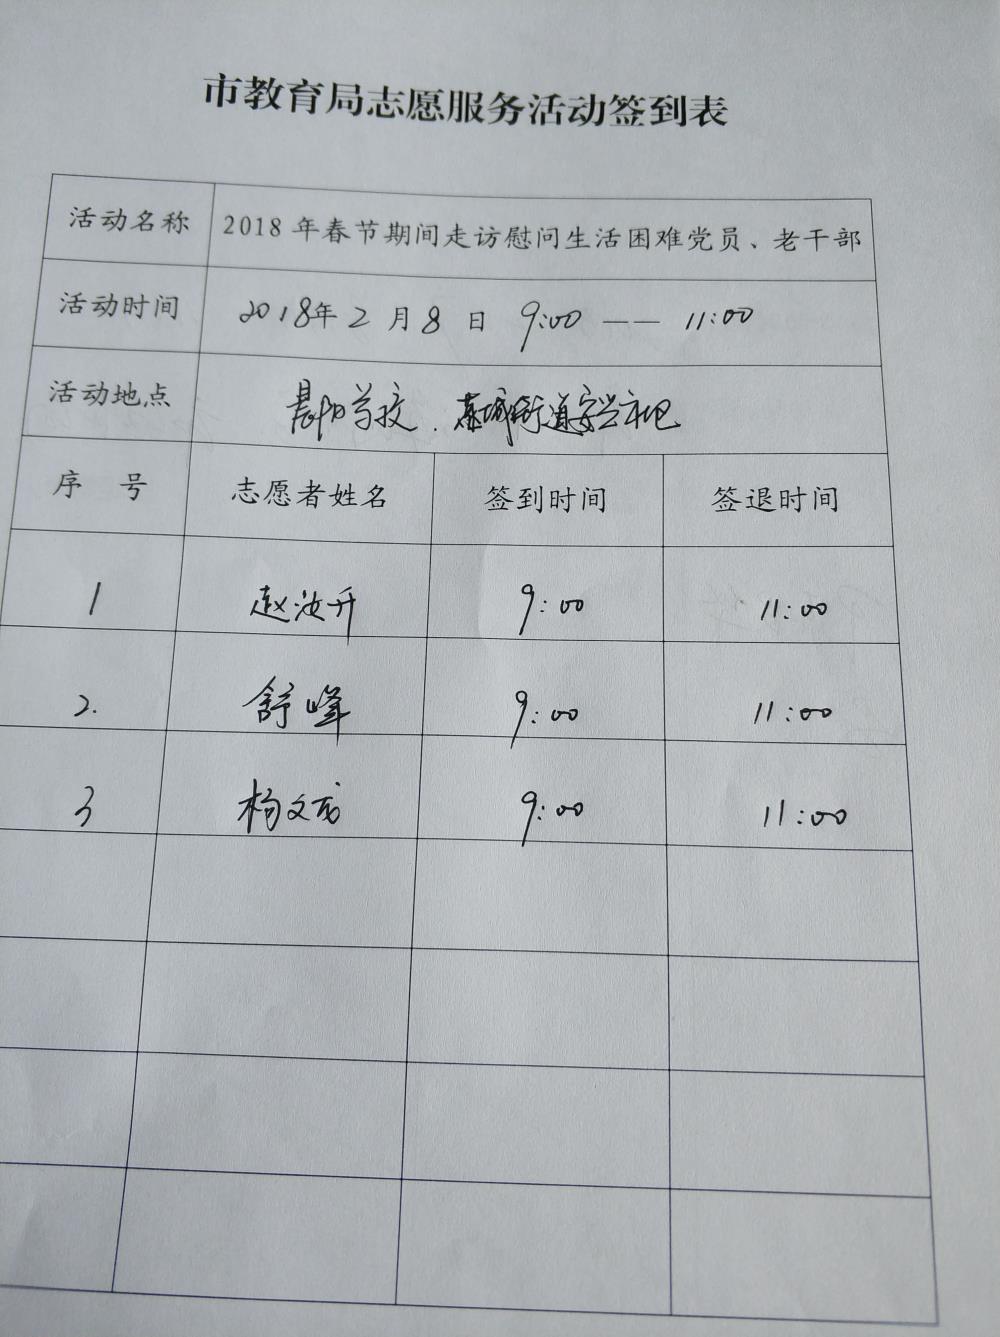 市教育局志愿服务活动签到表
活动名称 2018年春节期间走访慰问生活困难党员、老干部
活动时间 2018年2月8日 9:00 —— 11:00
活动地点 晨阳学校、城街道安兴社区
序 号 志愿者姓名 签到时间 签退时间
1 赵汝升 9:00 11:00
2. 舒峰 9:00 11:00
3 杨文成 9:00 11:00